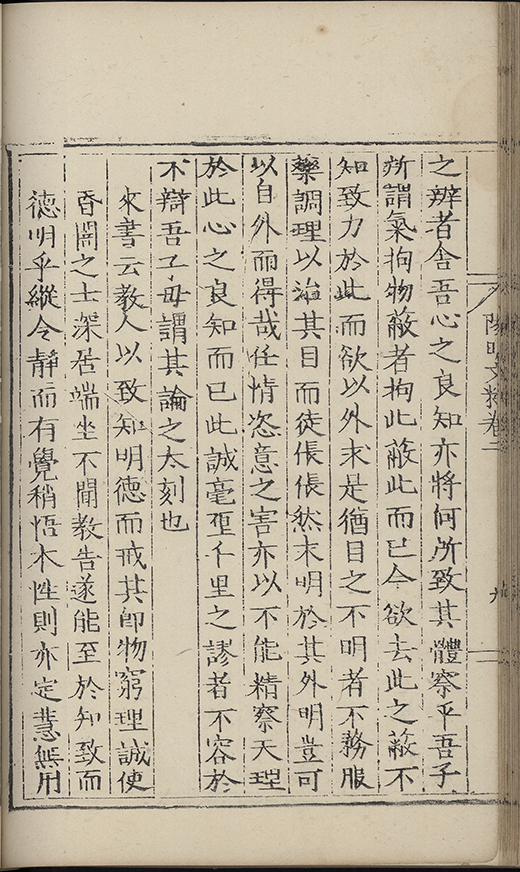 之辨者舍吾心之良知亦將何所致其體察乎吾子
所謂氣拘物蔽者拘此蔽此而已今欲去此之蔽不
知致力於此而欲以外求是猶目之不明者不務服
藥調理以治其目而徒倀倀然求明於其外明豈可
以自外而得哉任情恣意之害亦以不能精察天理
於此心之良知而已此誠毫厘千里之謬者不容於
不辯吾子毋謂其論之太刻也
來書云教人以致知明德而戒其即物窮理誠使
昏闇之士深居端坐不聞教告遂能至於知致而
德明乎縱令靜而有覺稍悟本性則亦定慧無用
陽明文粹卷二
九